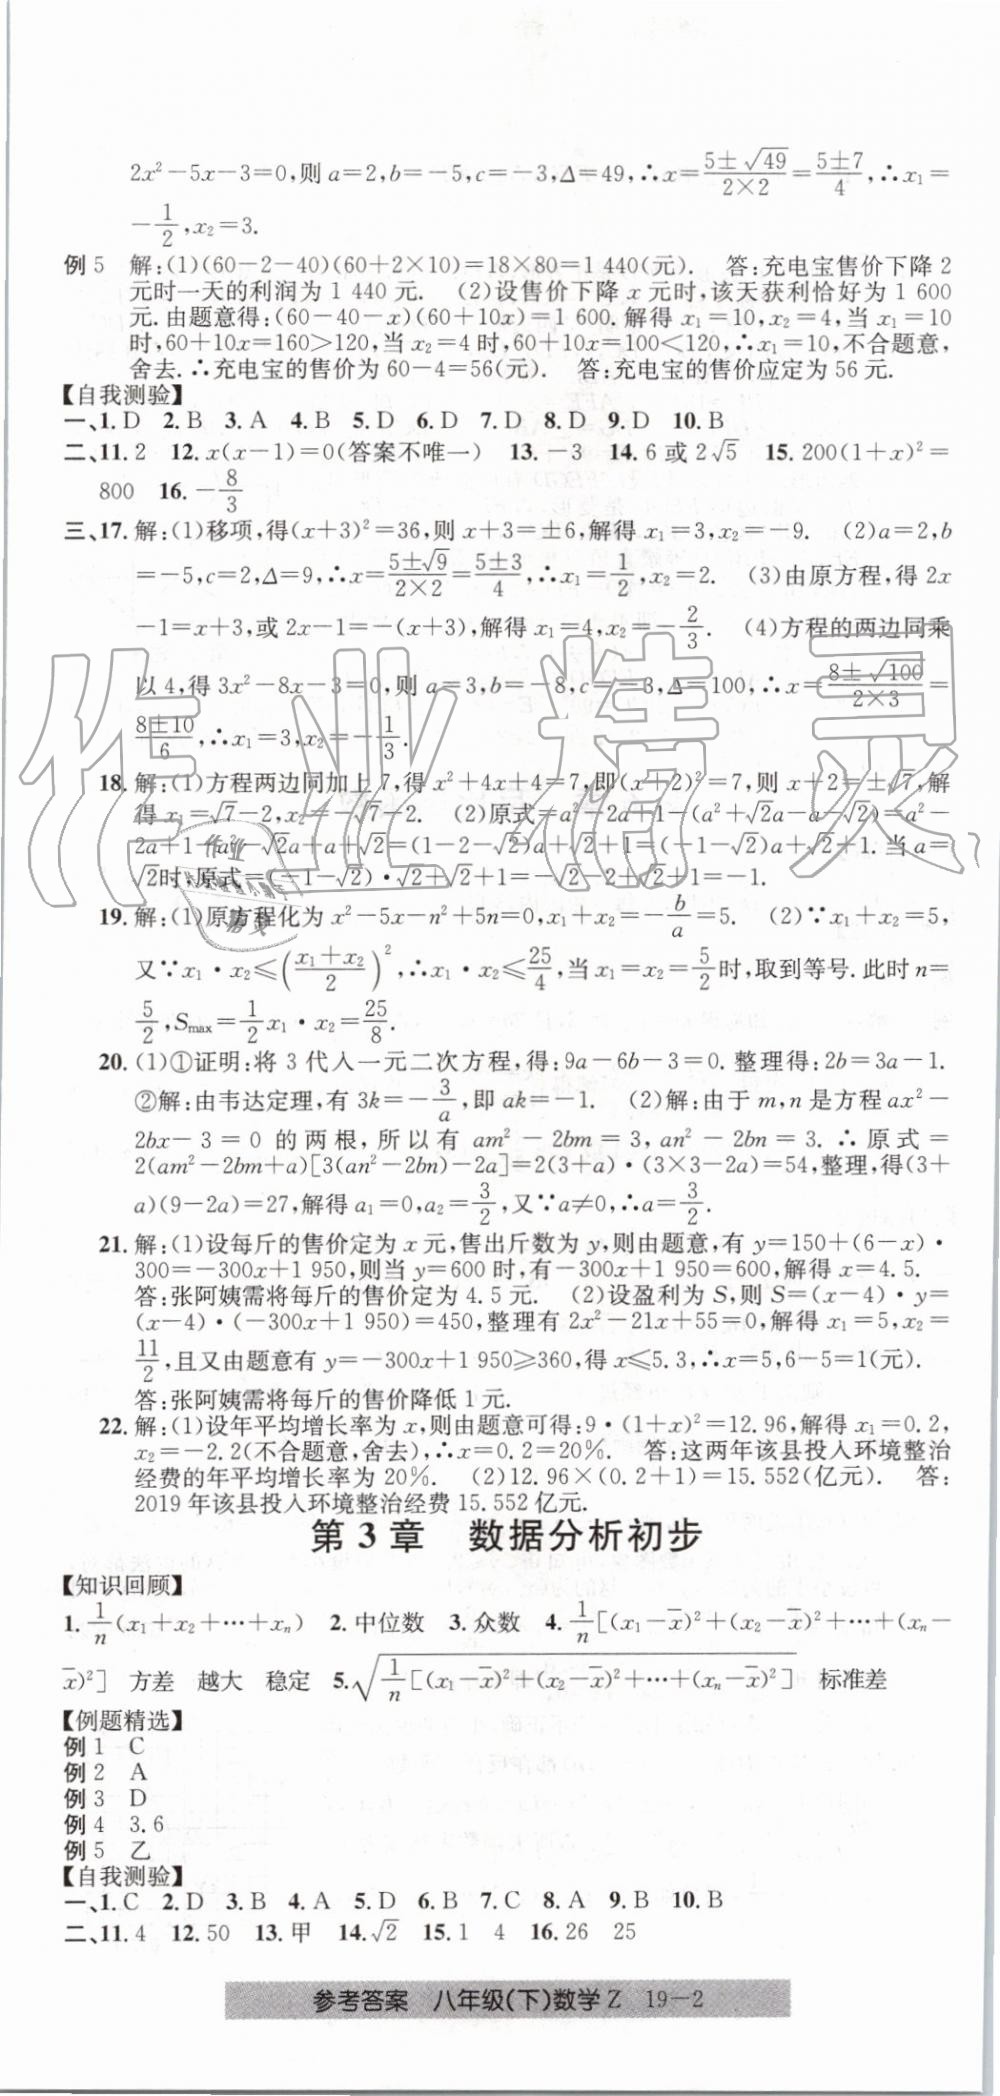 2x²-5x-3=0,则a=2,b=-5,c=-3,Δ=49,∴x=(5±√49)/(2×2)=(5±7)/4,∴x₁=
-1/2,x₂=3.
例5 解:(1)(60-2-40)(60+2×10)=18×80=1 440(元). 答:充电宝售价下降2
元时一天的利润为1 440元. (2)设售价下降x元时,该天获利恰好为1 600
元.由题意得:(60-40-x)(60+10x)=1 600.解得x₁=10,x₂=4,当x₁=10
时,60+10x=160>120,当x₂=4时,60+10x=100<120,∴x₁=10,不合题意,
舍去.∴充电宝的售价为60-4=56(元). 答:充电宝的售价应定为56元.
【自我测验】
一、1.D 2.B 3.A 4.B 5.D 6.D 7.D 8.D 9.D 10.B
二、11.2 12.x(x-1)=0(答案不唯一) 13.-3 14.6或2√5 15.200(1+x)²=
800 16.-8/3
三、17.解:(1)移项,得(x+3)²=36,则x+3=±6,解得x₁=3,x₂=-9. (2)a=2,b
=-5,c=2,Δ=9,∴x=(5±√9)/(2×2)=(5±3)/4,∴x₁=1/2,x₂=2. (3)由原方程,得2x
-1=x+3,或2x-1=-(x+3),解得x₁=4,x₂=-2/3. (4)方程的两边同乘
以4,得3x²-8x-3=0,则a=3,b=-8,c=-3,Δ=100,∴x=(8±√100)/(2×3)=
(8±10)/6,∴x₁=3,x₂=-1/3.
18.解:(1)方程两边同加上7,得x²+4x+4=7,即(x+2)²=7,则x+2=±√7,解
得x₁=√7-2,x₂=-√7-2. (2)原式=a²-2a+1-(a²+√2a-a-√2)=a²-
2a+1-a²-√2a+a+√2=(1-2-√2)a+√2+1=(-1-√2)a+√2+1.当a=
√2时,原式=(-1-√2)·√2+√2+1=-√2-2+√2+1=-1.
19.解:(1)原方程化为x²-5x-n²+5n=0,x₁+x₂=-b/a=5. (2)∵x₁+x₂=5,
又∵x₁·x₂≤((x₁+x₂)/2)²,∴x₁·x₂≤25/4,当x₁=x₂=5/2时,取到等号.此时n=
5/2,Smax=1/2x₁·x₂=25/8.
20.(1)①证明:将3代入一元二次方程,得:9a-6b-3=0.整理得:2b=3a-1.
②解:由韦达定理,有3k=-3/a,即ak=-1. (2)解:由于m,n是方程ax²-
2bx-3=0的两根,所以有am²-2bm=3,an²-2bn=3.∴原式=
2(am²-2bm+a)[3(an²-2bn)-2a]=2(3+a)·(3×3-2a)=54,整理,得(3+
a)(9-2a)=27,解得a₁=0,a₂=3/2,又∵a≠0,∴a=3/2.
21.解:(1)设每斤的售价定为x元,售出斤数为y,则由题意,有y=150+(6-x)·
300=-300x+1 950,则当y=600时,有-300x+1 950=600,解得x=4.5.
答:张阿姨需将每斤的售价定为4.5元. (2)设盈利为S,则S=(x-4)·y=
(x-4)·(-300x+1 950)=450,整理有2x²-21x+55=0,解得x₁=5,x₂=
11/2,且又由题意有y=-300x+1 950≥360,得x≤5.3,∴x=5,6-5=1(元).
答:张阿姨需将每斤的售价降低1元.
22.解:(1)设年平均增长率为x,则由题意可得:9·(1+x)²=12.96,解得x₁=0.2,
x₂=-2.2(不合题意,舍去),∴x=0.2=20%. 答:这两年该县投入环境整治
经费的年平均增长率为20%. (2)12.96×(0.2+1)=15.552(亿元). 答:
2019年该县投入环境整治经费15.552亿元.
第3章 数据分析初步
【知识回顾】
1.1/n(x₁+x₂+…+xₙ) 2.中位数 3.众数 4.1/n[(x₁-x̄)²+(x₂-x̄)²+…+(xₙ-
x̄)²] 方差 越大 稳定 5.√(1/n[(x₁-x̄)²+(x₂-x̄)²+…+(xₙ-x̄)²]) 标准差
【例题精选】
例1 C
例2 A
例3 D
例4 3.6
例5 乙
【自我测验】
一、1.C 2.D 3.B 4.A 5.D 6.B 7.C 8.A 9.B 10.B
二、11.4 12.50 13.甲 14.√2 15.1 4 16.26 25
参考答案 八年级(下)数学Z 19-2
作业精灵